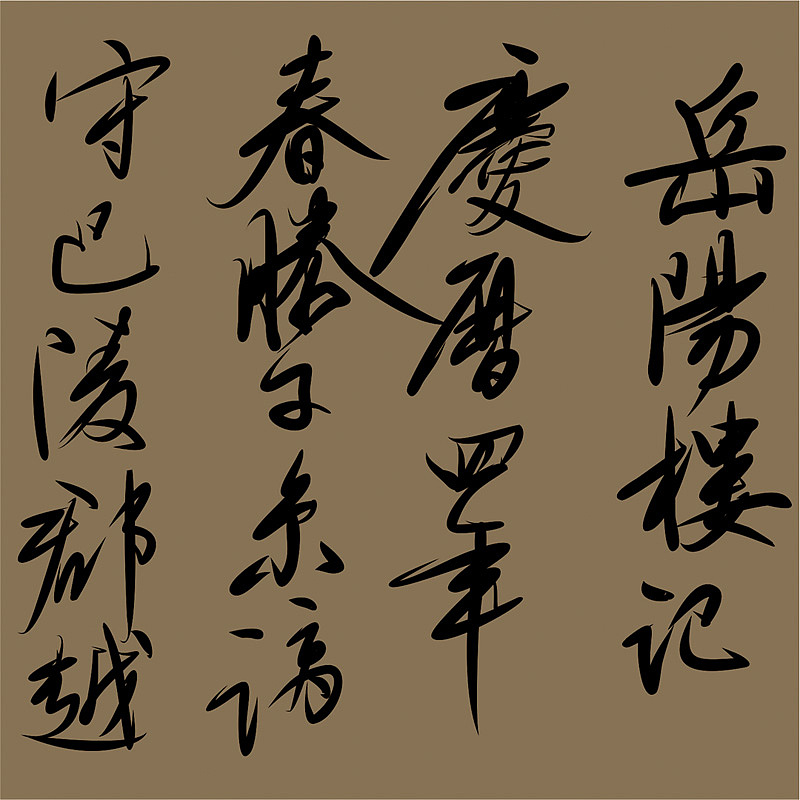 岳陽樓记
慶曆四年
春滕子京谪
守巴陵郡越